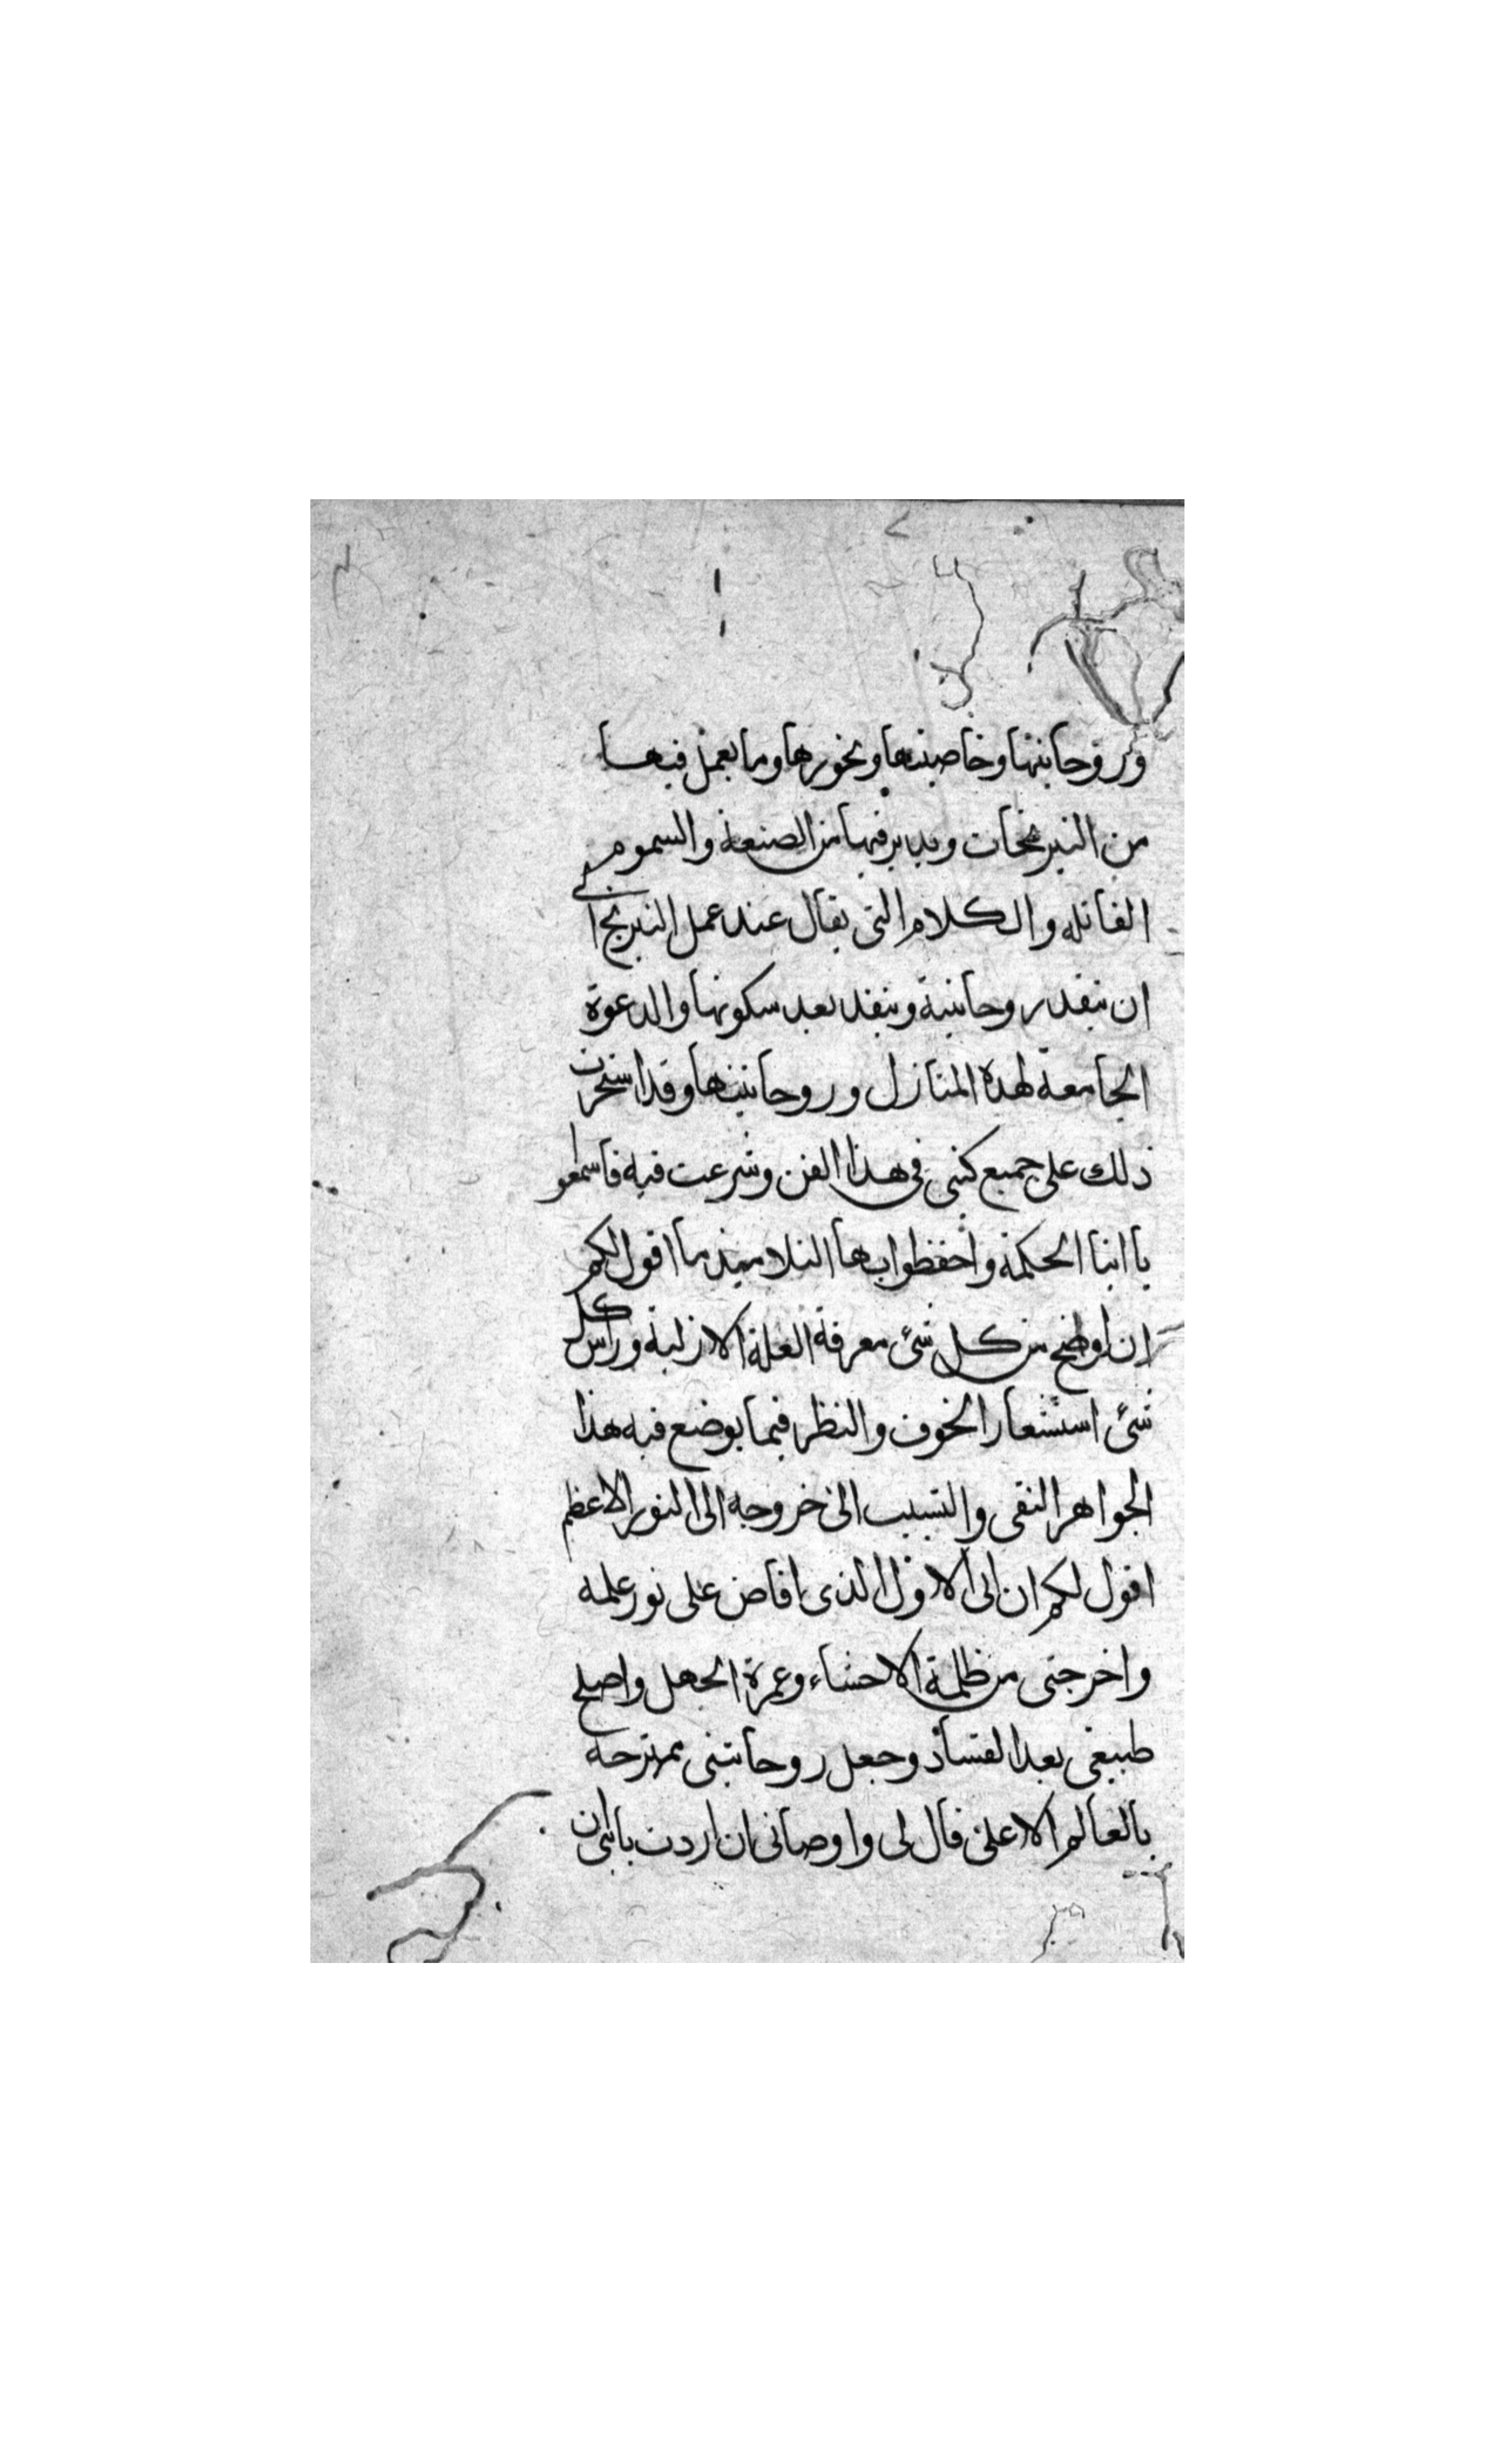 وروحانيتها وخاصيتها وبخورها وما يعمل فيها
من النيرنجات ويدبر فيها من الصنعة والسموم
القاتله والكلام التى يقال عند عمل النيرنج الى
ان ينفد روحانية وينفد بعد سكونها والدعوة
الجامعة لهذه المنازل وروحانيتها وقد اسخرت
ذلك على جميع كتبى فى هذا الفن وشرعت فيه فاسمعو
يا ابنا الحكمة واحفظوا بها التلاميذ ما اقول لكم
ان اوضح من كل شئ معرفة العلة الازلية وراس كل
شئ استشعار الخوف والنظر فيما يوضع فيه هذا
الجواهر النقى والتسبب الى خروجه الى النور الاعظم
اقول لكم ان ابى الاول الذى افاض على نور علمه
واخرجنى من ظلمة الاحشاء وغمرة الجهل واصلح
طبيعى بعد الفساد وجعل روحانيتى ممتزجة
بالعالم الاعلى قال لى واوصانى ان اردت يا بنى ان